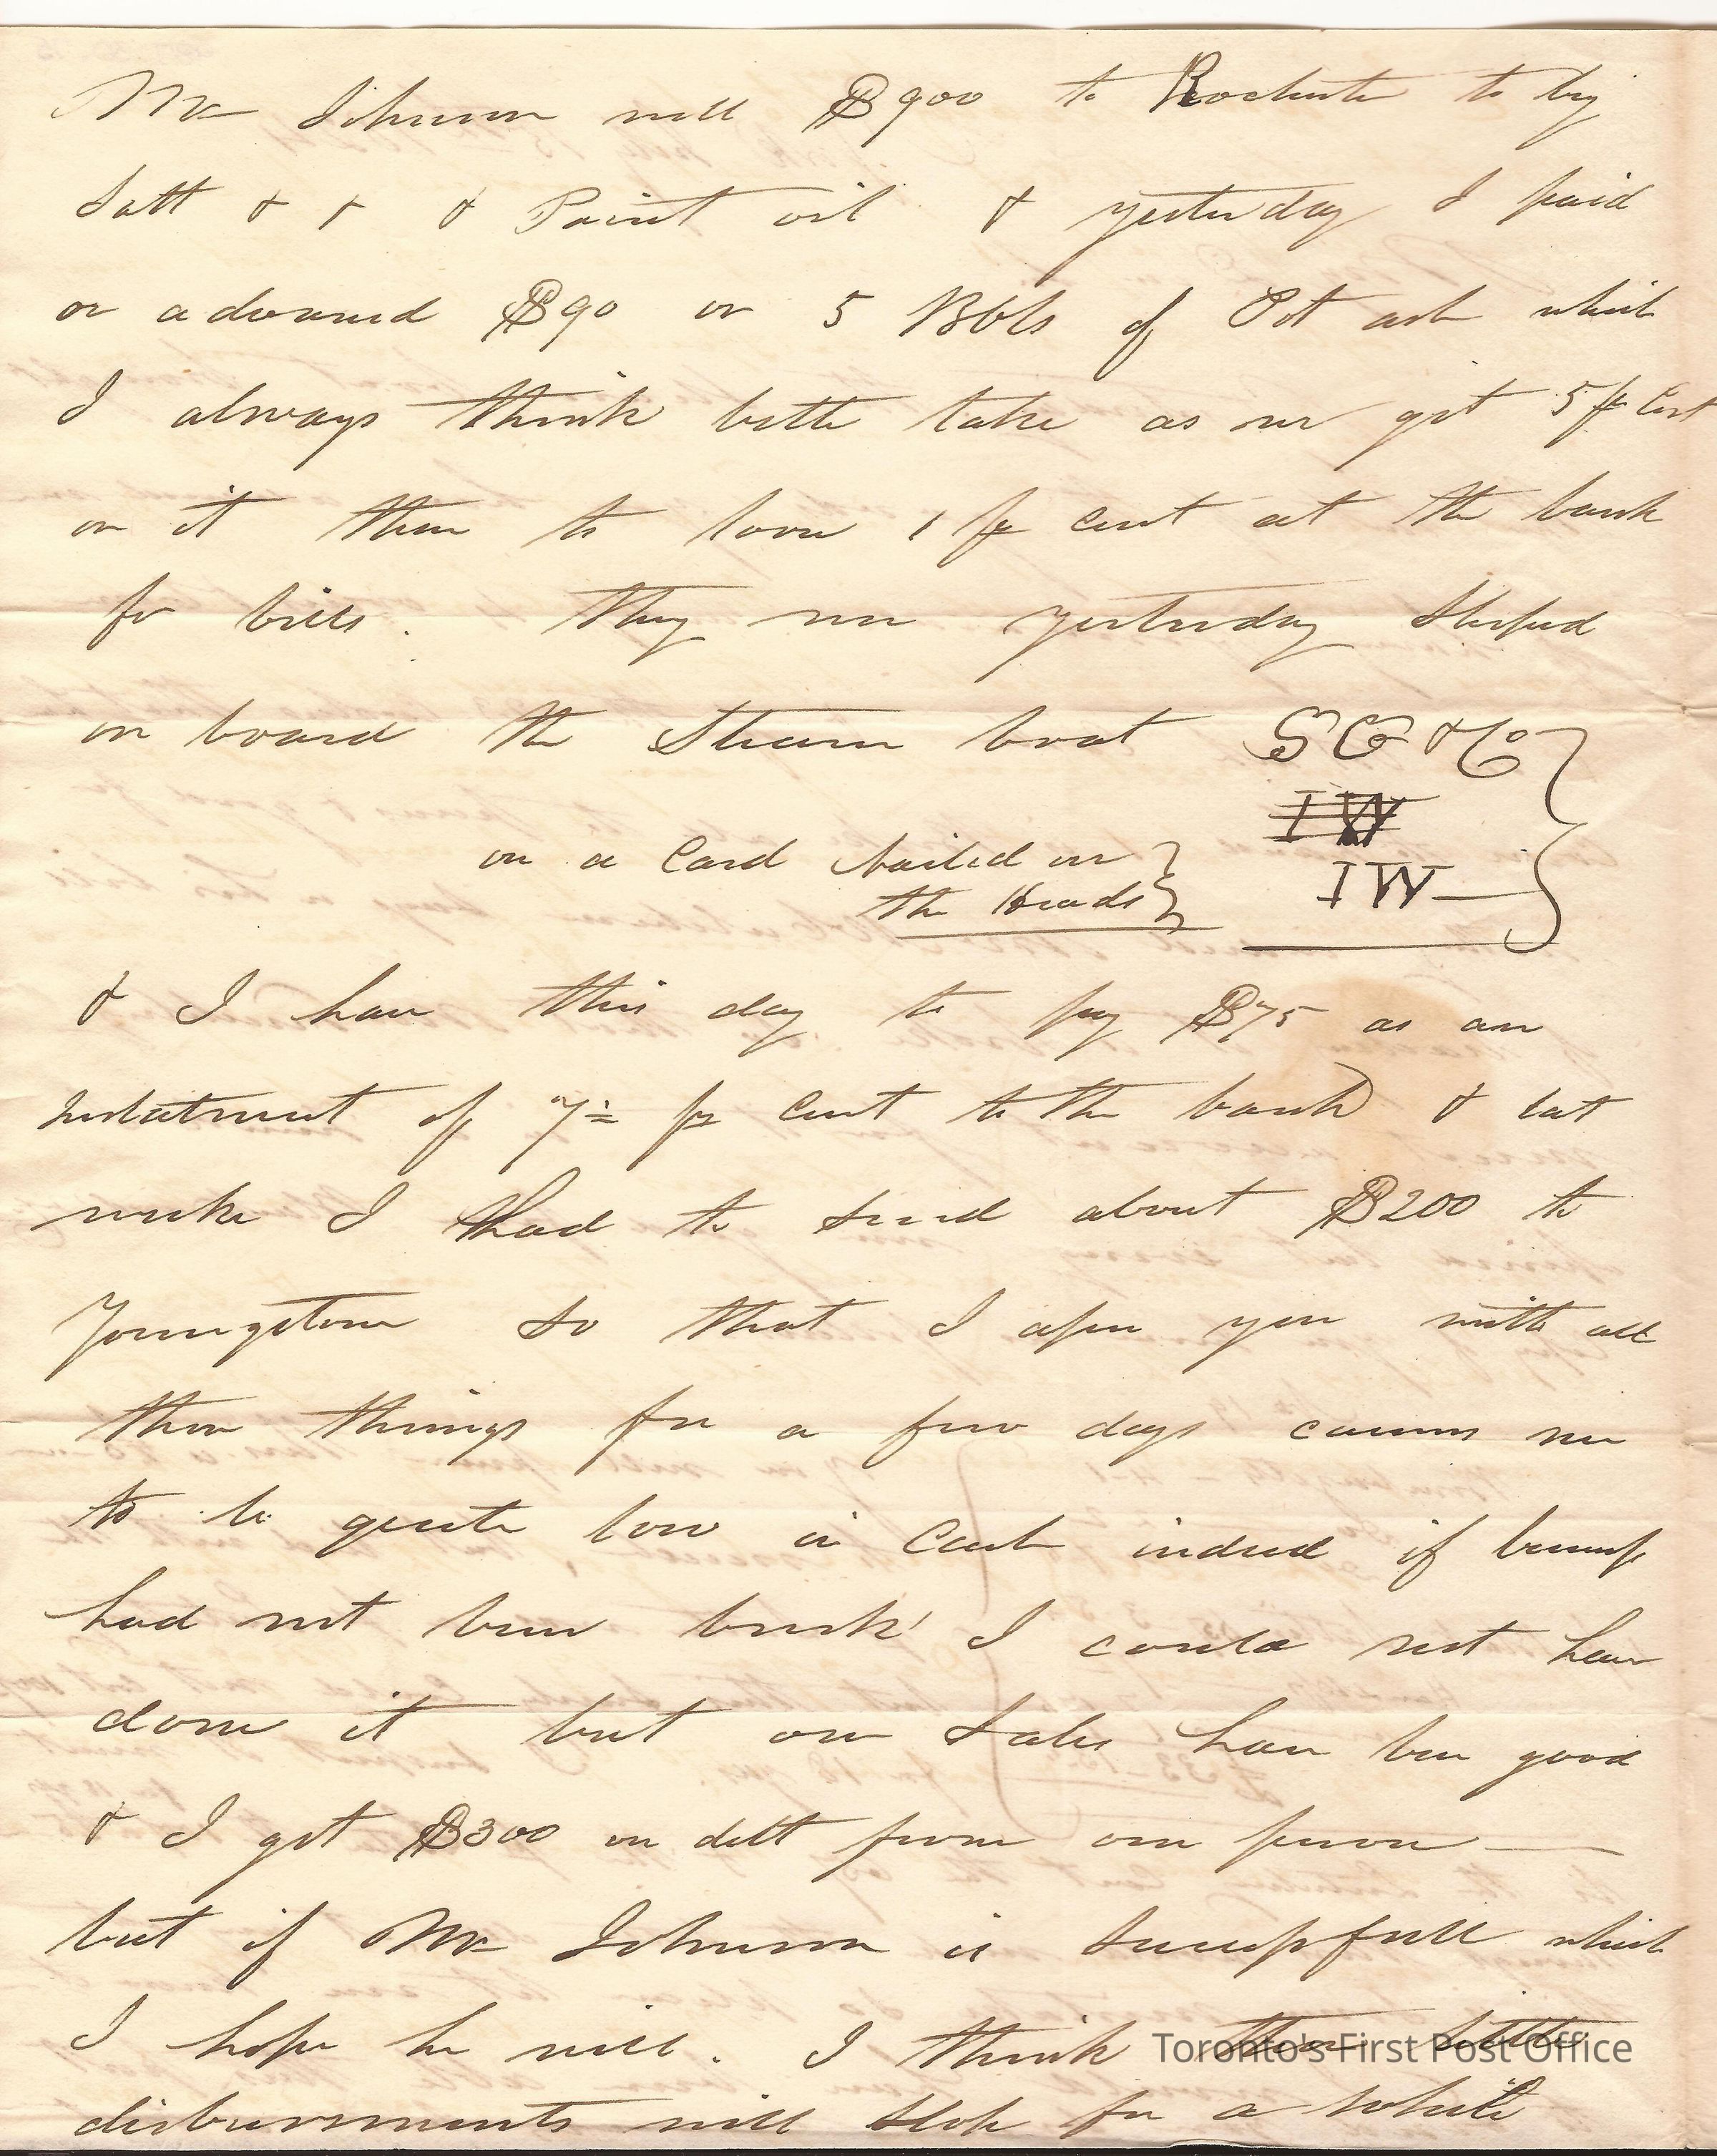 Mr Johnson will $900 to Rochester to buy
Salt & & & Paint oil & yesterday I paid
or advanced $90 on 5 Bbls of Pot ash which
I always think better take as we get 5 pr Cent
on it then to loose 1 pr cent at the bank
for bills. They were yesterday Shiped
on board the Steam boat SG & Co
IW
on a Card nailed on
the Heads
IW
& I have this day to pay $75 as an
instalment of 7½ pr Cent to the bank & last
weeke I had to send about $200 to
Youngstown So that I asure you with all
thes things for a few days causes me
to be quite low in Cash indeed if business
had not been brisk I could not have
done it but our Sales have been good
& I got $300 on debt from one person
but if Mr Johnson is Successfull which
I hope he will. I think these little
disbursements will Stop for a while
Toronto's First Post Office